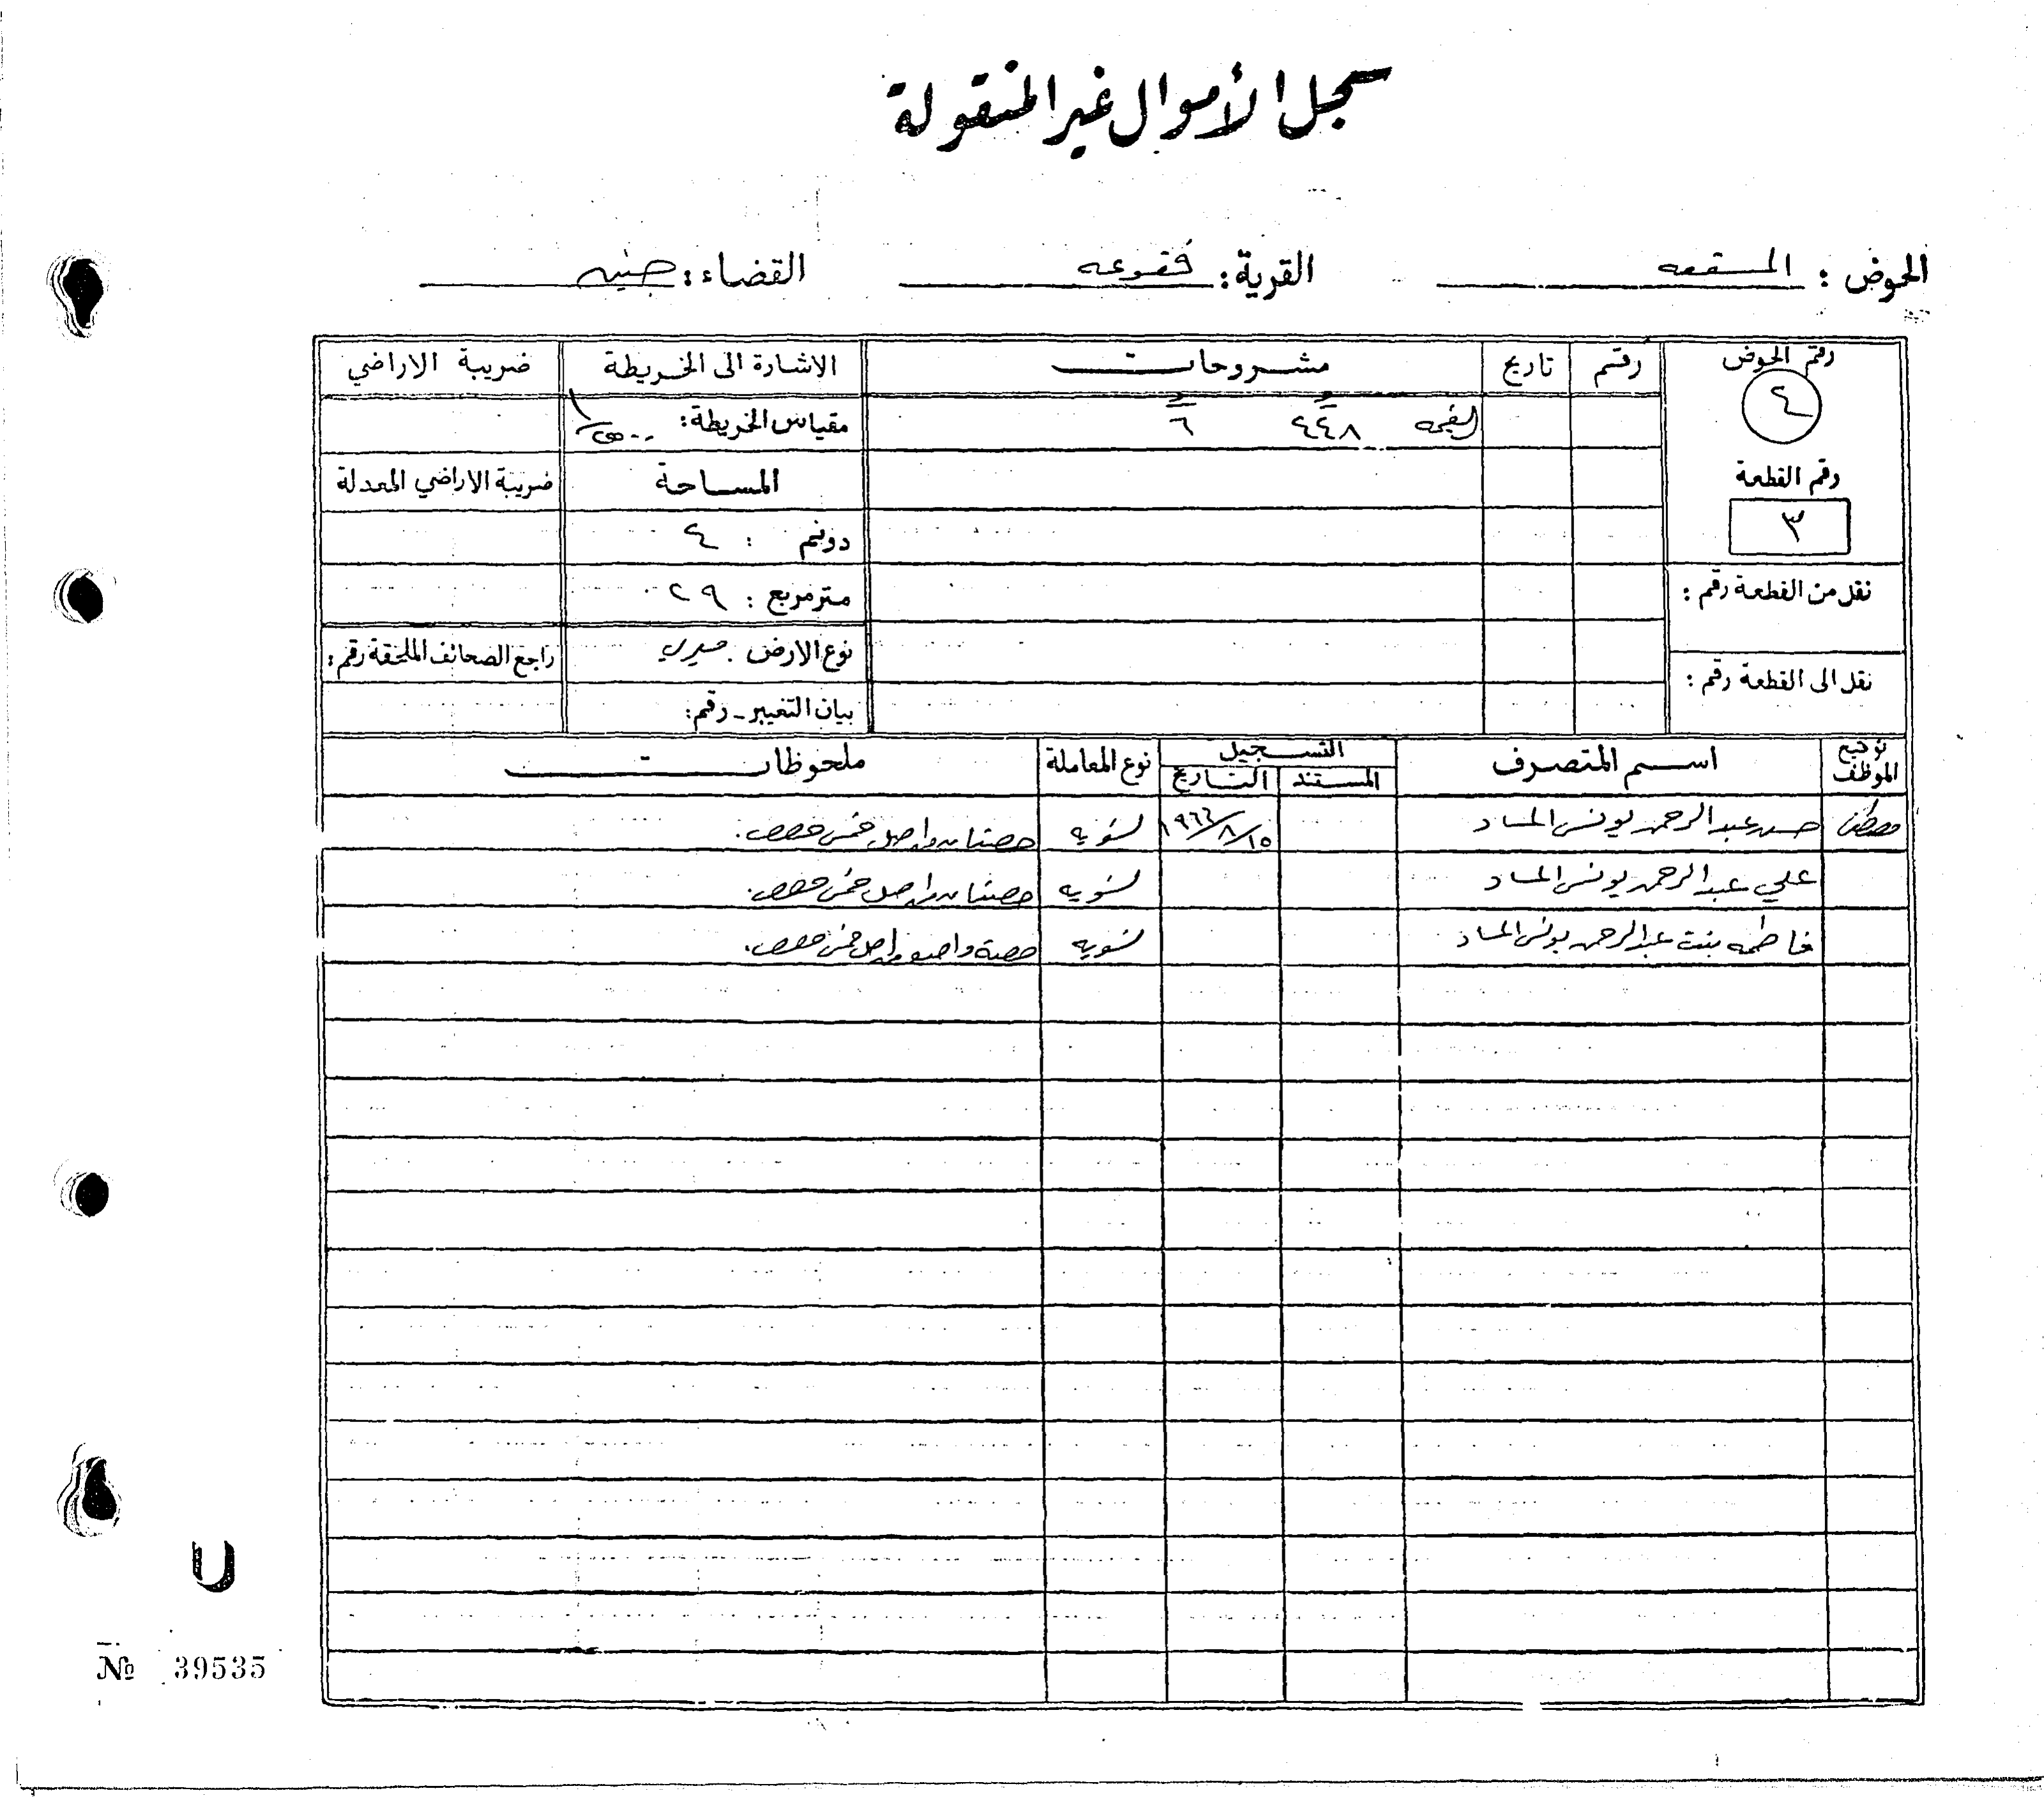 سجل الأموال غير المنقولة
الحوض : القرية : فقوعه القضاء : جنين
رقم الحوض رقم تاريخ مشروحات الاشارة الى الخريطة ضريبة الاراضي
٤ ٤٤٨ ٦ مقياس الخريطة :
رقم القطعة المساحة ضريبة الاراضي المعدلة
٣ دونم : ٤
نقل من القطعة رقم : متر مربع : ٢٩
نوع الارض . ميري راجع الصحائف الملحقة رقم :
نقل الى القطعة رقم : بيان التغيير - رقم :
توقيع الموظف اسم المتصرف التسجيل نوع المعاملة ملحوظات
المستند التاريخ
مصطفى حسن عبد الرحمن يونس ١٥/٨/١٩٦٦ تسويه حصتان من اصل خمس حصص .
علي عبد الرحمن يونس تسويه حصتان من اصل خمس حصص .
فاطمه بنت عبد الرحمن يونس تسويه حصة واحدة من اصل خمس حصص .
U
№ 39535